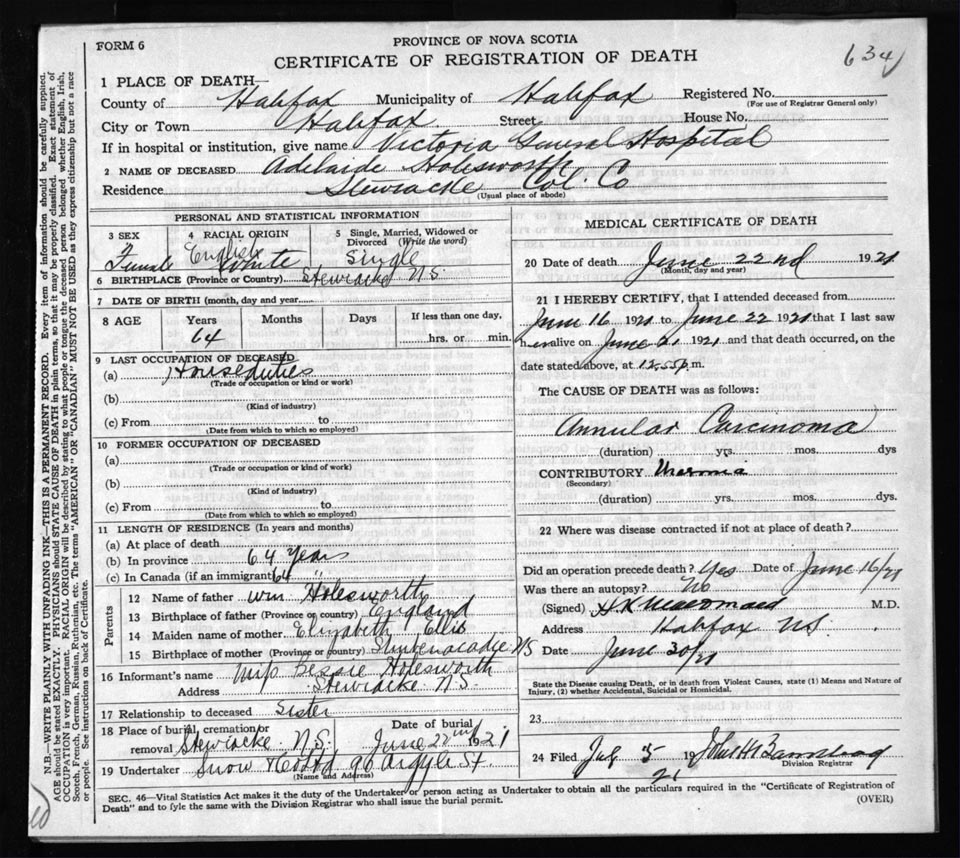 FORM 6
PROVINCE OF NOVA SCOTIA
CERTIFICATE OF REGISTRATION OF DEATH
634
1 PLACE OF DEATH—
County of Halifax Municipality of Halifax Registered No.
(For use of Registrar General only)
City or Town Halifax Street House No.
If in hospital or institution, give name Victoria General Hospital
2 NAME OF DECEASED Adelaide Holesworth
Residence Stewiacke Col. Co
(Usual place of abode)
PERSONAL AND STATISTICAL INFORMATION
3 SEX Female
4 RACIAL ORIGIN English White
5 Single, Married, Widowed or Divorced (Write the word) Single
6 BIRTHPLACE (Province or Country) Stewiacke N.S.
7 DATE OF BIRTH (month, day and year)
8 AGE Years Months Days If less than one day,
64 hrs. or min.
9 LAST OCCUPATION OF DECEASED
(a) Houseduties
(Trade or occupation or kind or work)
(b)
(Kind of industry)
(c) From to
(Date from which to which so employed)
10 FORMER OCCUPATION OF DECEASED
(a)
(Trade or occupation or kind of work)
(b)
(Kind of industry)
(c) From to
(Date from which to which so employed)
11 LENGTH OF RESIDENCE (In years and months)
(a) At place of death
(b) In province 64 years
(c) In Canada (if an immigrant) 64 "
Parents
12 Name of father Wm Holesworth
13 Birthplace of father (Province or country) England
14 Maiden name of mother Elizabeth Ellis
15 Birthplace of mother (Province or country) Shubenacadie NS
16 Informant's name Miss Bessie Holesworth
Address Stewiacke N.S.
17 Relationship to deceased Sister
18 Place of burial, cremation or removal Stewiacke N.S. Date of burial June 22nd 1921
19 Undertaker Snow 90 Argyle St.
(Name and Address)
MEDICAL CERTIFICATE OF DEATH
20 Date of death June 22nd 1921
(Month, day and year)
21 I HEREBY CERTIFY, that I attended deceased from
June 16 1921 to June 22 1921 that I last saw
her alive on June 21 1921 and that death occurred, on the
date stated above, at 12.55 p.m.
The CAUSE OF DEATH was as follows:
Annular Carcinoma
(duration) yrs. mos. dys
CONTRIBUTORY
(Secondary)
(duration) yrs. mos. dys.
22 Where was disease contracted if not at place of death?
Did an operation precede death? Yes Date of June 16/21
Was there an autopsy? No
(Signed) M.D.
Address Halifax NS
Date June 30/21
State the Disease causing Death, or in death from Violent Causes, state (1) Means and Nature of
Injury, (2) whether Accidental, Suicidal or Homicidal.
23
24 Filed July 5 1921 John H Barnstead
Division Registrar
SEC. 46—Vital Statistics Act makes it the duty of the Undertaker or person acting as Undertaker to obtain all the particulars required in the "Certificate of Registration of
Death" and to fyle the same with the Division Registrar who shall issue the burial permit.
(OVER)
N.B.—WRITE PLAINLY WITH UNFADING INK—THIS IS A PERMANENT RECORD. Every item of information should be carefully supplied.
AGE should be stated EXACTLY. PHYSICIANS should STATE CAUSE OF DEATH in plain terms, so that it may be properly classified. Exact statement of
OCCUPATION is very important. RACIAL ORIGIN will be described by stating to what people or tongue the deceased person belonged whether English, Irish,
Scotch, French, German, Russian, Ruthenian, etc. The terms "AMERICAN" OR "CANADIAN" MUST NOT BE USED as they express citizenship but not a race
or people. See instructions on back of Certificate.